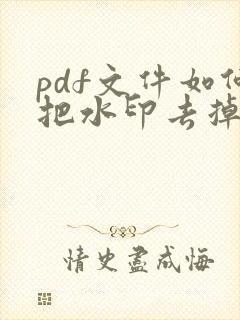 pdf文件如何
把水印去掉
情史尽成悔